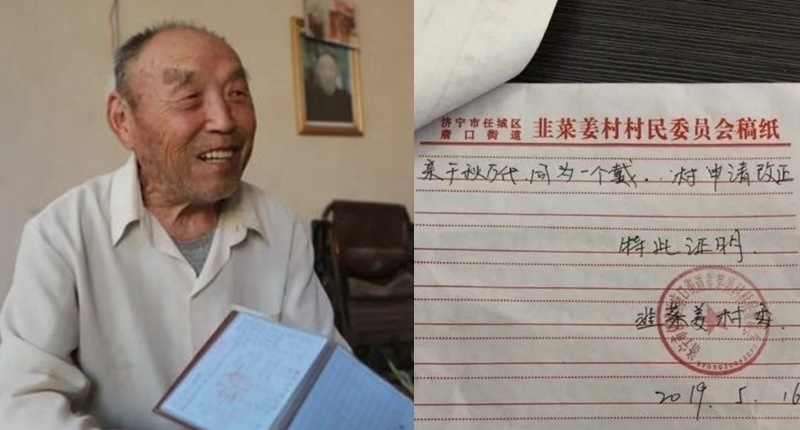 济宁市任城区
唐口街道
韭菜姜村村民委员会稿纸
亲千秋万代,同为一个戴. 村申请改正
特此证明.
韭菜姜村委.
2019. 5. 16